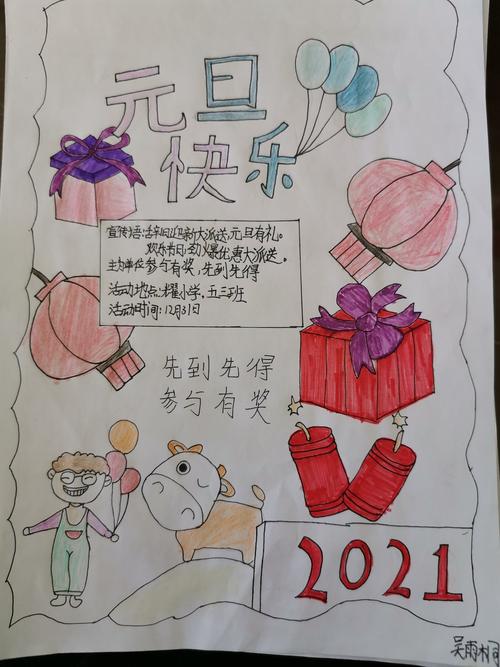 元旦
快乐
宣传语:辞旧迎新大派送,元旦有礼。
欢乐节日,劲爆优惠大派送。
主办单位:参与有奖,先到先得
活动地点:耀小学,五三班
活动时间:12月31日
先到先得
参与有奖
2021
吴雨桐